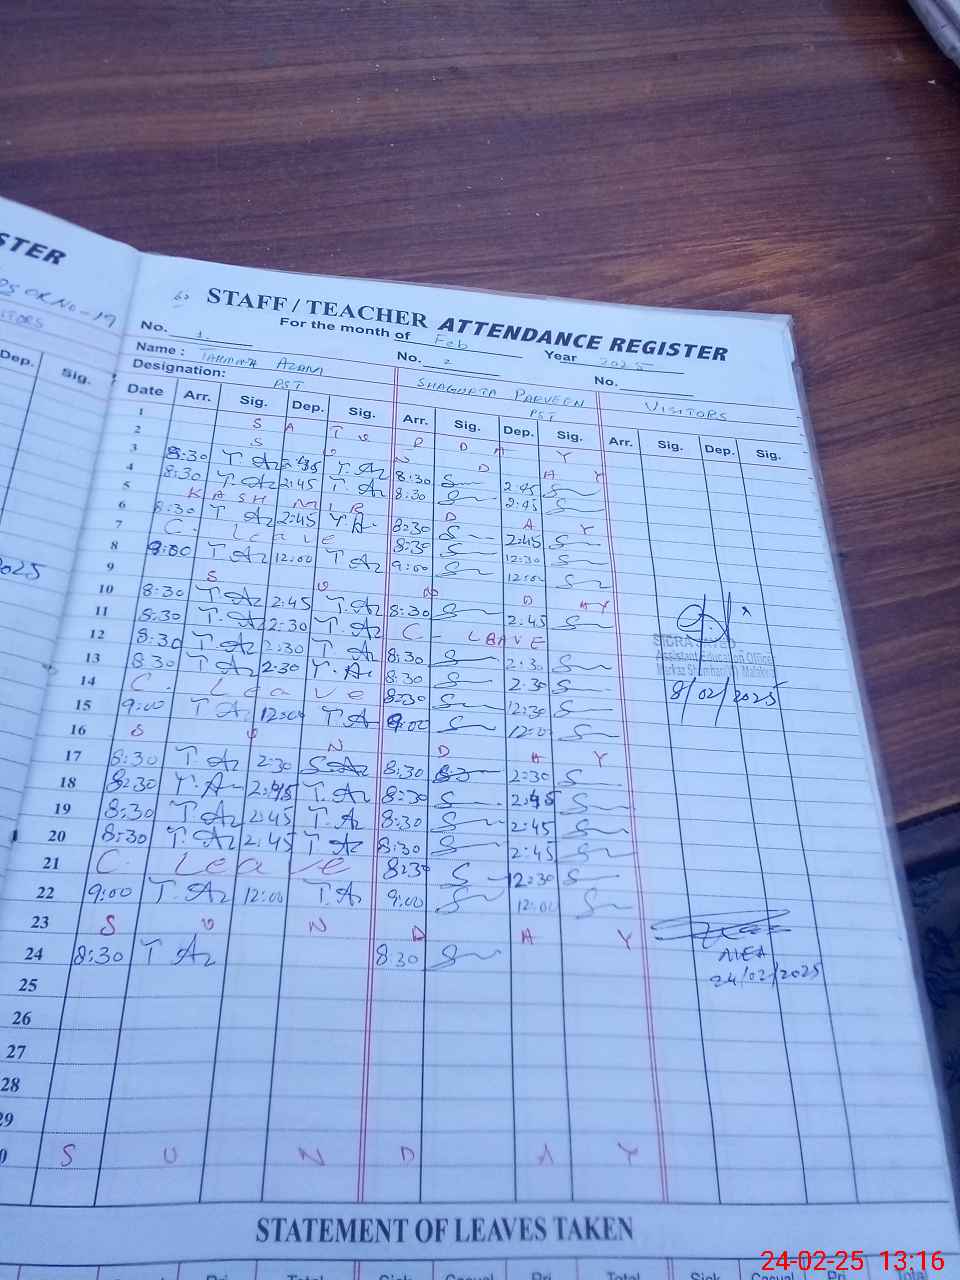 STER
STAFF / TEACHER ATTENDANCE REGISTER
For the month of Feb Year 2025
No. 1 No. 2 No.
Name : TAHMINA AZAM SHAGUFTA PARVEEN VISITORS
Designation: PST PST
Dep. Sig.
Date Arr. Sig. Dep. Sig. Arr. Sig. Dep. Sig. Arr. Sig. Dep. Sig.
1 S A T U R D A Y
2 S U N D A Y
3 8:30 T. Az 2:45 T. Az 8:30 2:45
4 8:30 T. Az 2:45 T. Az 8:30 2:45
5 KASHMIR D A Y
6 8:30 T Az 2:45 T.A 8:30 2:45
7 C. Leave 8:30 12:30
8 9:00 T. Az 12:00 T Az 9:00 12:00
9 S U N D A Y
10 8:30 T. Az 2:45 T. Az 8:30 2:45
11 8:30 T. Az 2:30 T. Az C - LEAVE
12 8:30 T. Az 2:30 T Az 8:30 2:30
13 8:30 T Az 2:30 T. A. 8:30 2:30
14 C. Leave 8:30 12:30
15 9:00 T Az 12:00 T.A 9:00 12:00
16 S U N D A Y
17 8:30 T. Az 2:30 8:30 2:30
18 8:30 T. A 2:45 T. Az 8:30 2:45
19 8:30 T. Az 2:45 T. Az 8:30 2:45
20 8:30 T. Az 2:45 T Az 8:30 2:45
21 C. Leave 8:30 12:30
22 9:00 T. Az 12:00 T. Az 9:00 12:00
23 S U N D A Y
24 8:30 T Az 8:30
25
26
27
28
29
0 S U N D A Y
Assistant Education Officer
8/02/2025
AEO
24/02/2025
STATEMENT OF LEAVES TAKEN
24-02-25 13:16